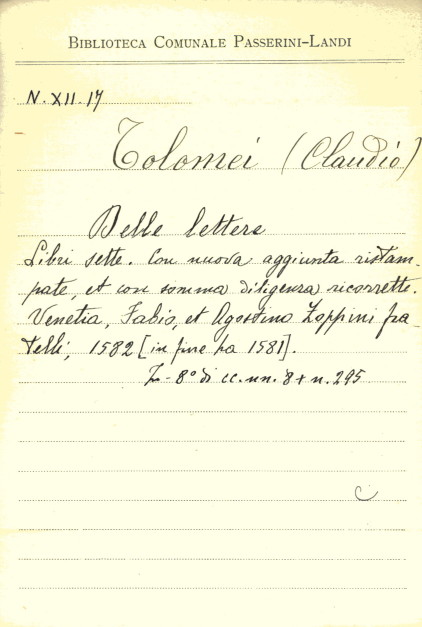 BIBLIOTECA COMUNALE PASSERINI-LANDI
N. XII. 17
Tolomei (Claudio)
Delle lettere
Libri sette. Con nuova aggiunta ristam-
pate, et con somma diligenza ricorrette.
Venetia, Fabio, et Agostino Zoppini fra
telli, 1582 [in fine ha 1581].
In-8° di cc. nn. 8 + n. 295
C